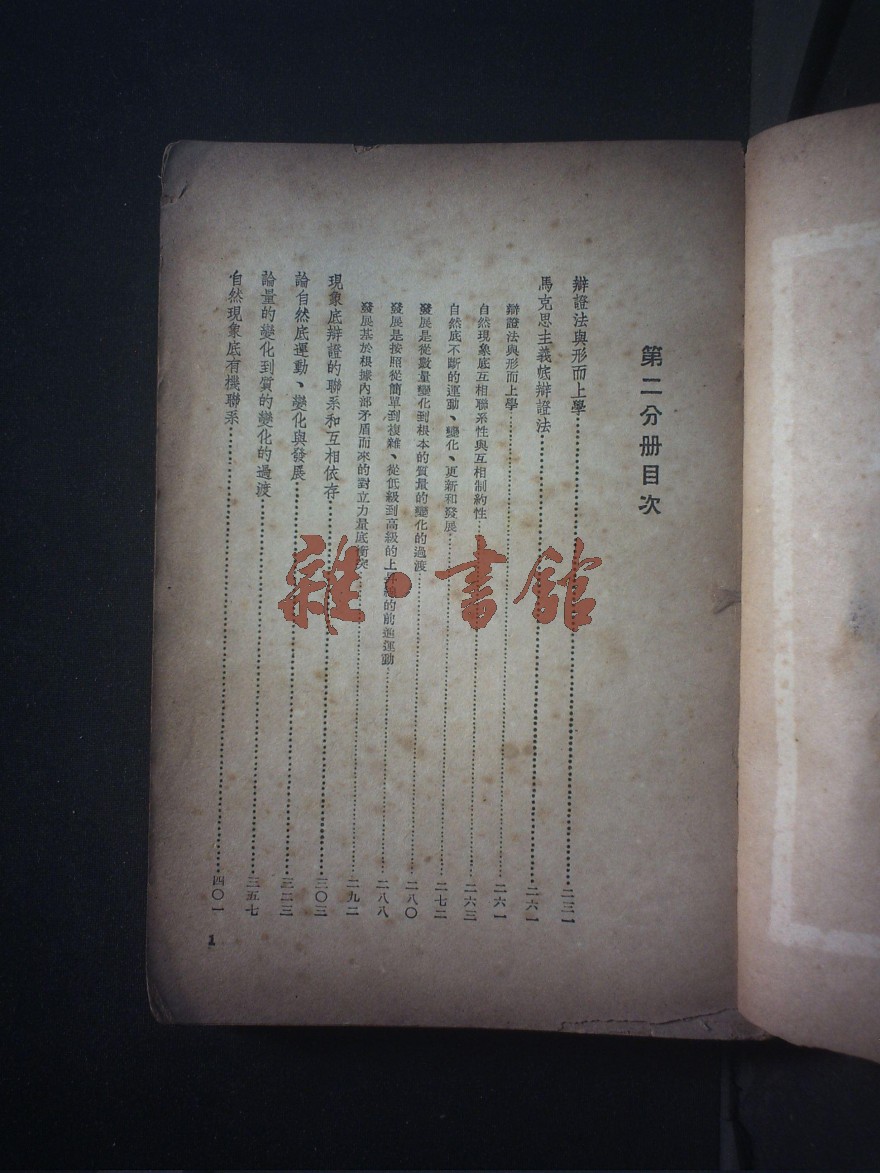 第二分册目次
辯證法與形而上學……二三一
馬克思主義底辯證法……二六一
辯證法與形而上學……二六一
自然現象底互相聯系性與互相制約性……二六三
自然底不斷的運動、變化、更新和發展……二七二
發展是從數量變化到根本的質量的變化的過渡……二八〇
發展是按照從簡單到複雜、從低級到高級的上升線的前進運動……二八八
發展基於根據內部矛盾而來的對立力量底衝突……二九二
現象底辯證的聯系和互相依存……三〇三
論自然底運動、變化與發展……三二三
論量的變化到質的變化的過渡……三五七
自然現象底有機聯系……四〇一
1
雜·書館